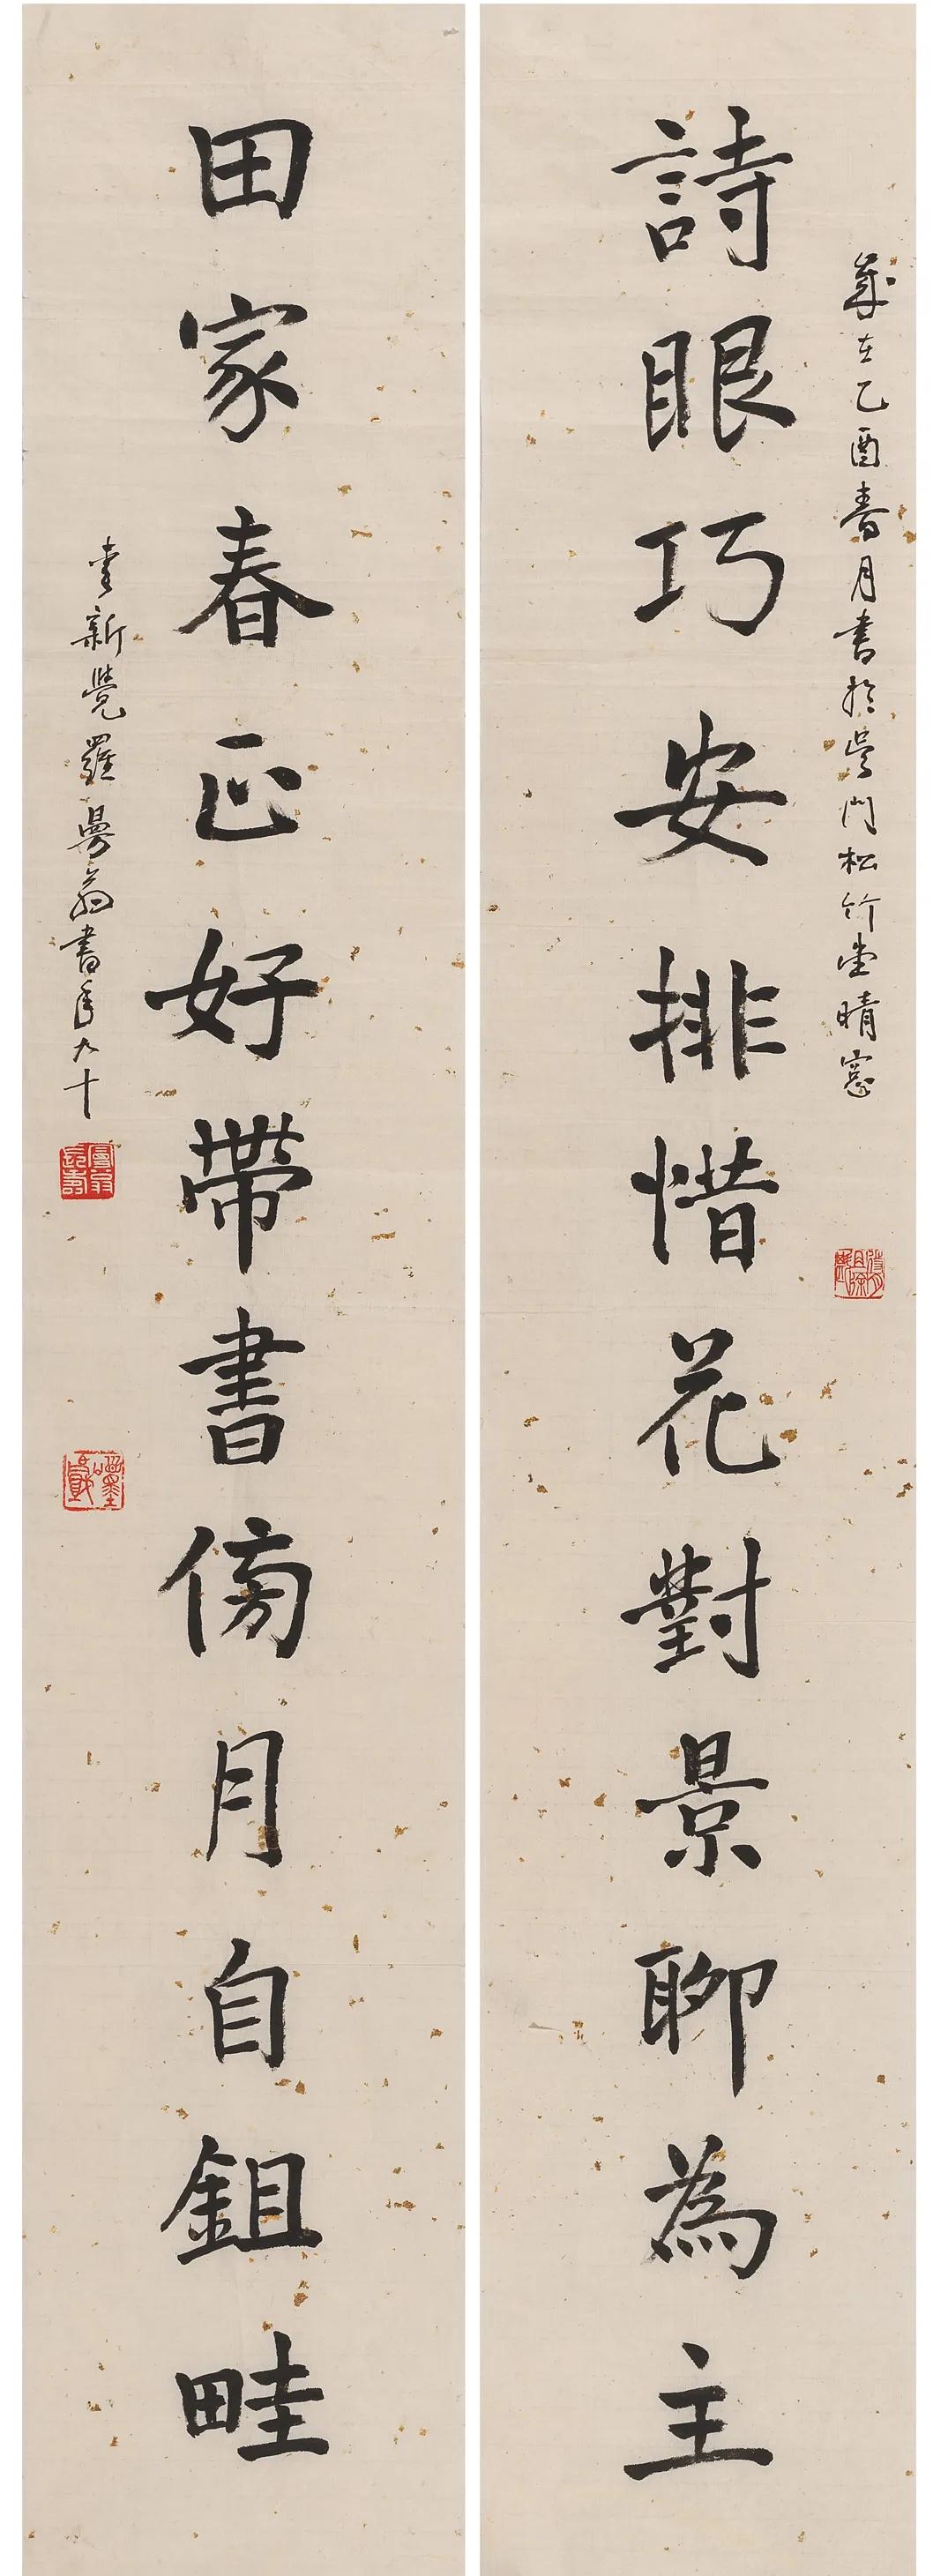 歲在乙酉春月書於吳門松竹堂晴窻
詩眼巧安排惜花對景聊為主
田家春正好帶書傍月自鉏畦
愛新覺羅曼翁書年九十
曼翁長壽